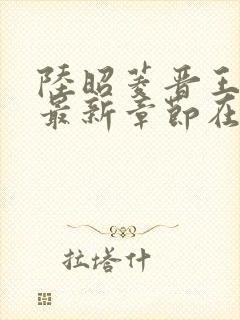 陸昭菱晋王
最新章節在
拉塔什